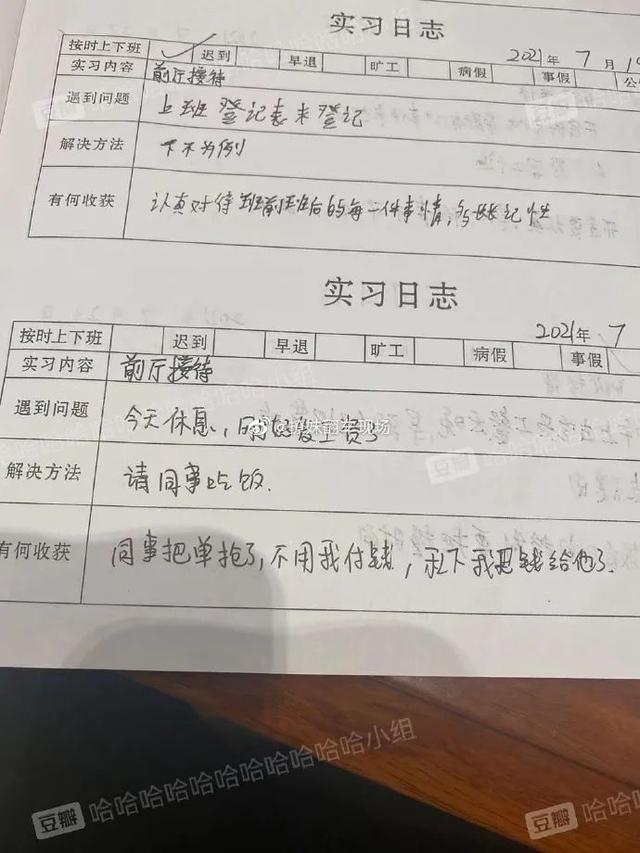 实习日志
2021年 7月
按时上下班 ✓ 迟到 早退 旷工 病假 事假
实习内容 前厅接待
遇到问题 上班登记表未登记
解决方法 下不为例
有何收获 认真对待班前班后的每一件事情,多长记性
实习日志
2021年 7
按时上下班 迟到 早退 旷工 病假 事假
实习内容 前厅接待
遇到问题 今天休息,发工资了
解决方法 请同事吃饭.
有何收获 同事把单抢了,不用我付钱,私下我把钱给他了.
豆瓣 哈哈哈哈哈哈哈哈哈哈小组
豆瓣 哈哈哈